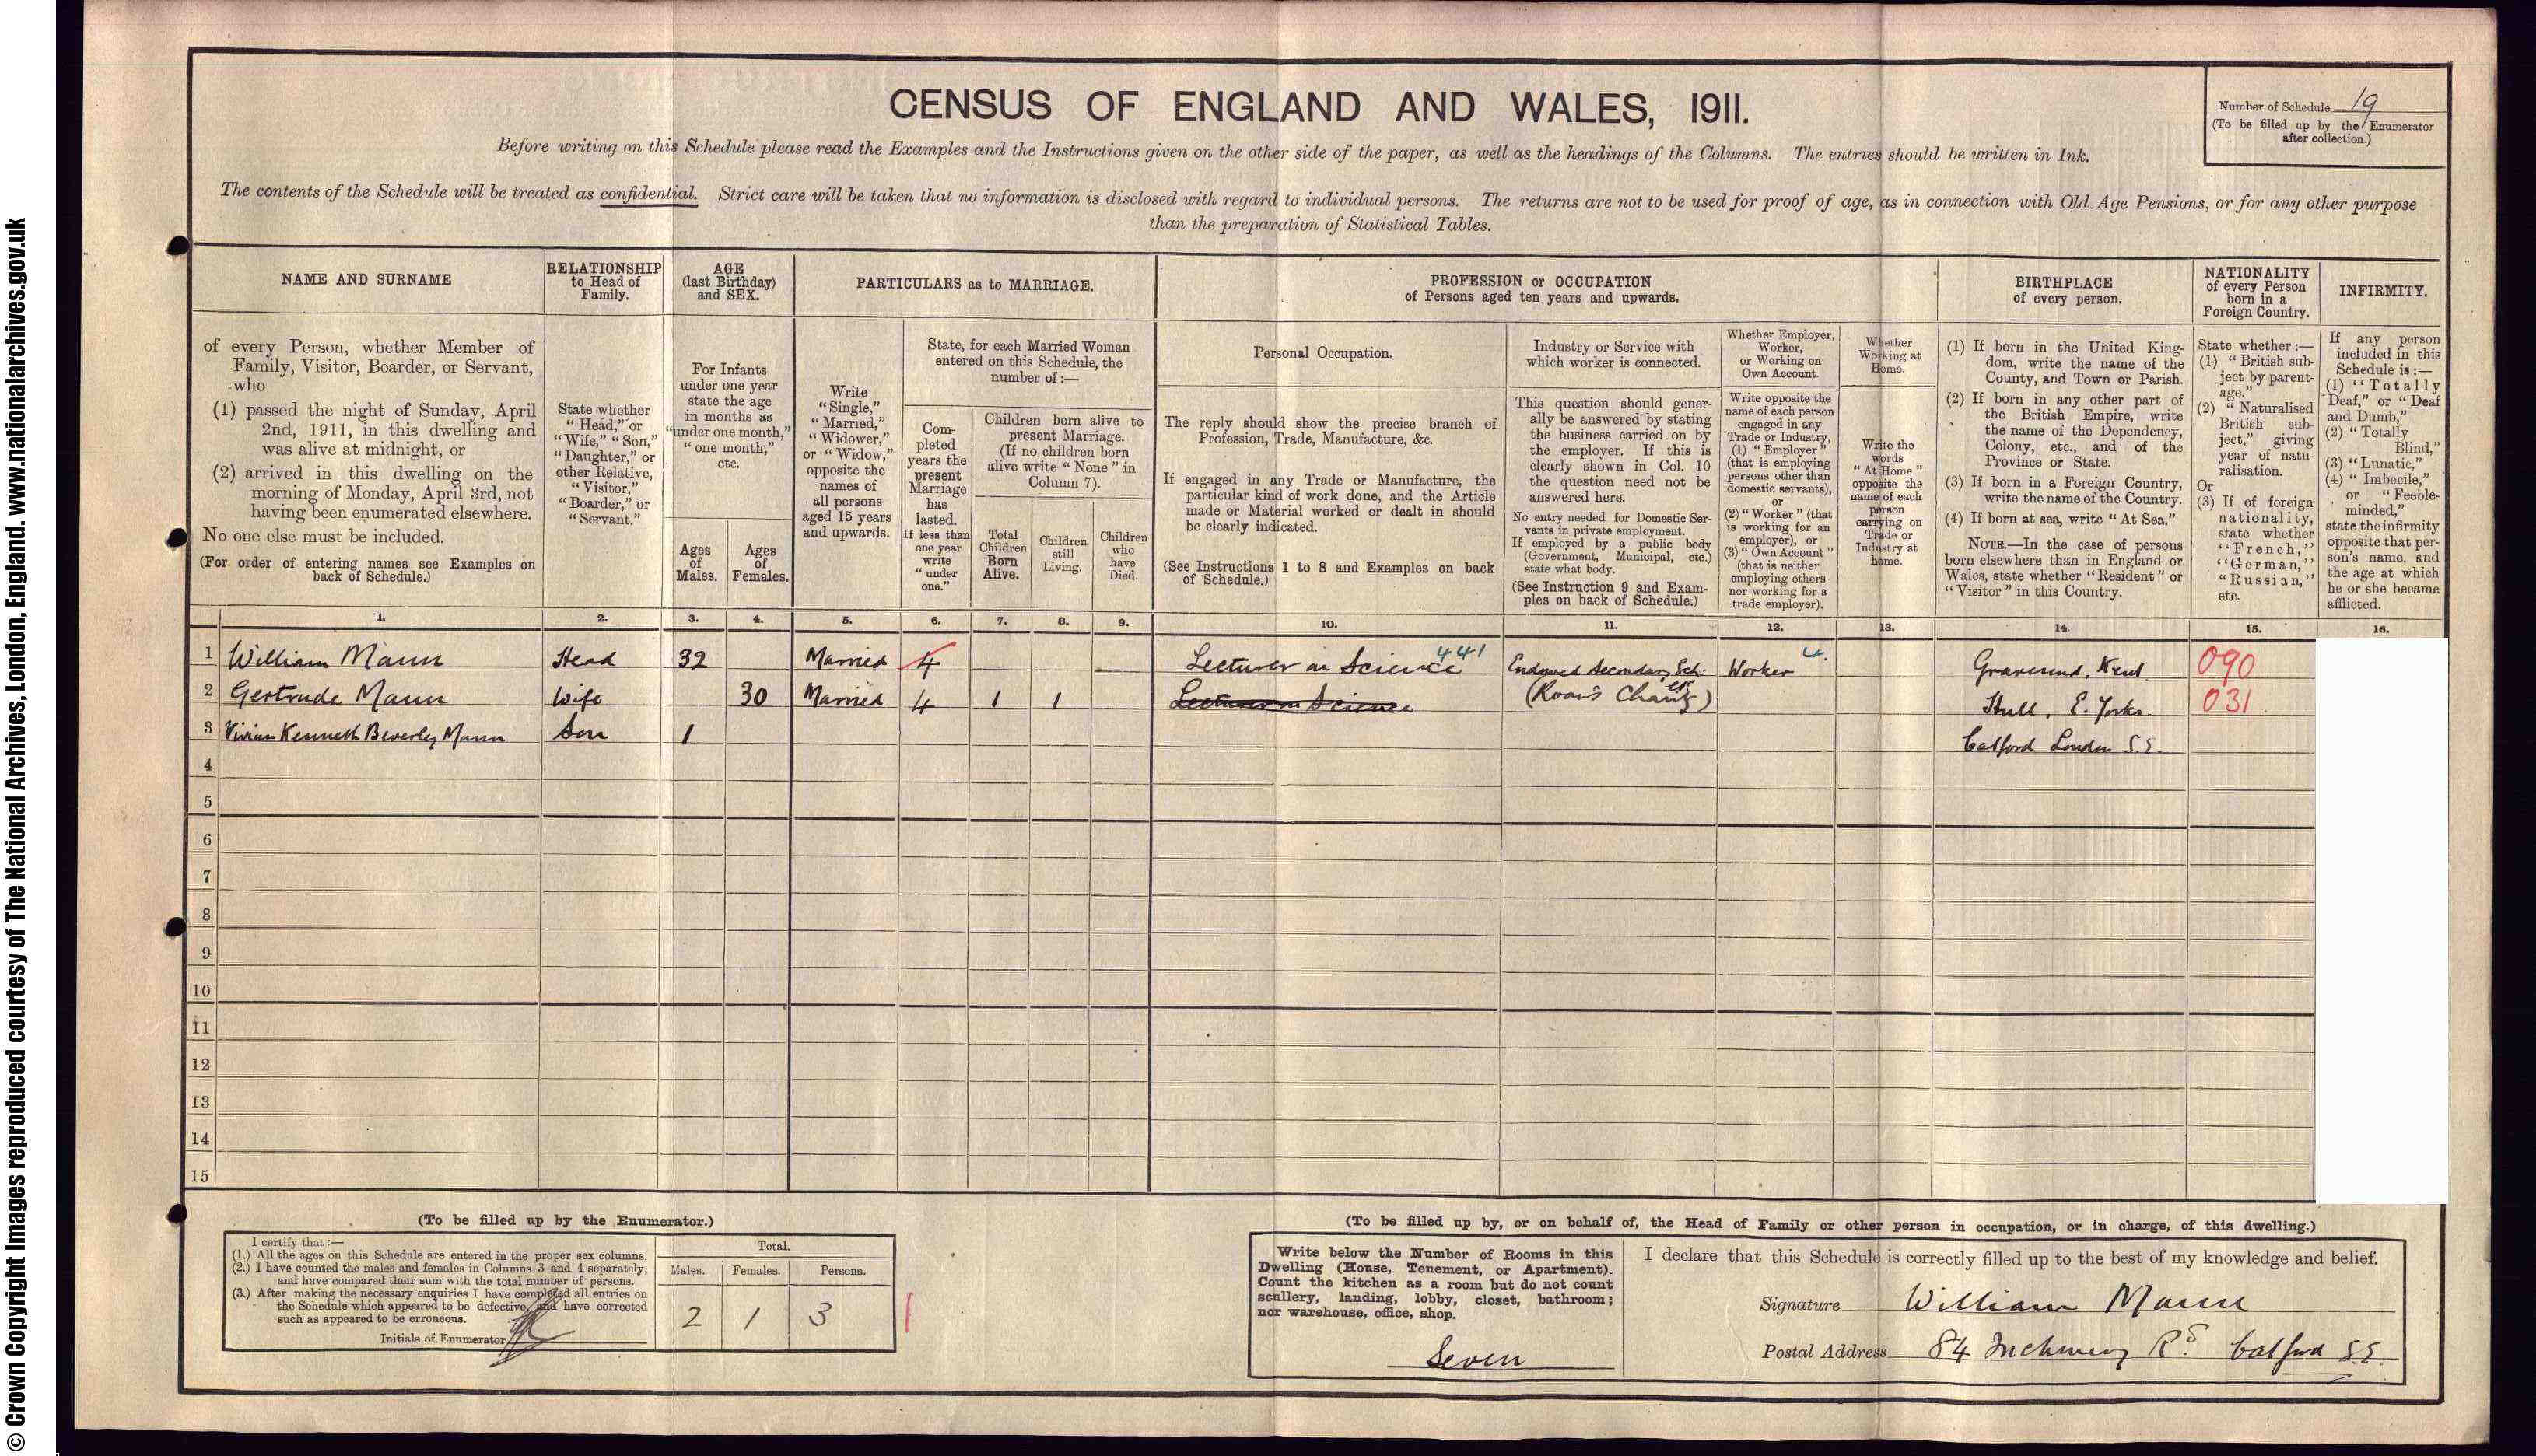 CENSUS OF ENGLAND AND WALES, 1911.
Number of Schedule 19
(To be filled up by the Enumerator
after collection.)
Before writing on this Schedule please read the Examples and the Instructions given on the other side of the paper, as well as the headings of the Columns. The entries should be written in Ink.
The contents of the Schedule will be treated as confidential. Strict care will be taken that no information is disclosed with regard to individual persons. The returns are not to be used for proof of age, as in connection with Old Age Pensions, or for any other purpose
than the preparation of Statistical Tables.
NAME AND SURNAME
RELATIONSHIP
to Head of
Family.
AGE
(last Birthday)
and SEX.
PARTICULARS as to MARRIAGE.
PROFESSION or OCCUPATION
of Persons aged ten years and upwards.
BIRTHPLACE
of every person.
NATIONALITY
of every Person
born in a
Foreign Country.
INFIRMITY.
of every Person, whether Member of
Family, Visitor, Boarder, or Servant,
who
(1) passed the night of Sunday, April
2nd, 1911, in this dwelling and
was alive at midnight, or
(2) arrived in this dwelling on the
morning of Monday, April 3rd, not
having been enumerated elsewhere.
No one else must be included.
(For order of entering names see Examples on
back of Schedule.)
State whether
"Head," or
"Wife," "Son,"
"Daughter," or
other Relative,
"Visitor,"
"Boarder," or
"Servant."
For Infants
under one year
state the age
in months as
"under one month,"
"one month,"
etc.
Ages
of
Males.
Ages
of
Females.
Write
"Single,"
"Married,"
"Widower,"
or "Widow,"
opposite the
names of
all persons
aged 15 years
and upwards.
State, for each Married Woman
entered on this Schedule, the
number of :—
Com-
pleted
years the
present
Marriage
has
lasted.
If less than
one year
write
"under
one."
Children born alive to
present Marriage.
(If no children born
alive write "None" in
Column 7).
Total
Children
Born
Alive.
Children
still
Living.
Children
who
have
Died.
Personal Occupation.
The reply should show the precise branch of
Profession, Trade, Manufacture, &c.
If engaged in any Trade or Manufacture, the
particular kind of work done, and the Article
made or Material worked or dealt in should
be clearly indicated.
(See Instructions 1 to 8 and Examples on back
of Schedule.)
Industry or Service with
which worker is connected.
This question should gener-
ally be answered by stating
the business carried on by
the employer. If this is
clearly shown in Col. 10
the question need not be
answered here.
No entry needed for Domestic Ser-
vants in private employment.
If employed by a public body
(Government, Municipal, etc.)
state what body.
(See Instruction 9 and Exam-
ples on back of Schedule.)
Whether Employer,
Worker,
or Working on
Own Account.
Write opposite the
name of each person
engaged in any
Trade or Industry,
(1) "Employer"
(that is employing
persons other than
domestic servants),
or
(2) "Worker" (that
is working for an
employer), or
(3) "Own Account"
(that is neither
employing others
nor working for a
trade employer).
Whether
Working at
Home.
Write the
words
"At Home"
opposite the
name of each
person
carrying on
Trade or
Industry at
home.
(1) If born in the United King-
dom, write the name of the
County, and Town or Parish.
(2) If born in any other part of
the British Empire, write
the name of the Dependency,
Colony, etc., and of the
Province or State.
(3) If born in a Foreign Country,
write the name of the Country.
(4) If born at sea, write "At Sea."
NOTE.—In the case of persons
born elsewhere than in England or
Wales, state whether "Resident" or
"Visitor" in this Country.
State whether :—
(1) "British sub-
ject by parent-
age."
(2) "Naturalised
British sub-
ject," giving
year of natu-
ralisation.
Or
(3) If of foreign
nationality,
state whether
"French,"
"German,"
"Russian,"
etc.
If any person
included in this
Schedule is :—
(1) "Totally
Deaf," or "Deaf
and Dumb,"
(2) "Totally
Blind,"
(3) "Lunatic,"
(4) "Imbecile,"
or "Feeble-
minded,"
state the infirmity
opposite that per-
son's name, and
the age at which
he or she became
afflicted.
1. 2. 3. 4. 5. 6. 7. 8. 9. 10. 11. 12. 13. 14. 15. 16.
1 William Mann Head 32 Married 4 Lecturer on Science 441 Endowed Secondary Sch: Worker 4. Gravesend, Kent 090
2 Gertrude Mann Wife 30 Married 4 1 1 Lecturer on Science (Roan's Charity) Hull, E. Yorks. 031
3 Vivian Kenneth Beverley Mann Son 1 Catford London S.E.
4
5
6
7
8
9
10
11
12
13
14
15
(To be filled up by the Enumerator.)
I certify that :—
(1.) All the ages on this Schedule are entered in the proper sex columns.
(2.) I have counted the males and females in Columns 3 and 4 separately,
and have compared their sum with the total number of persons.
(3.) After making the necessary enquiries I have completed all entries on
the Schedule which appeared to be defective, and have corrected
such as appeared to be erroneous.
Initials of Enumerator
Total.
Males. Females. Persons.
2 1 3
(To be filled up by, or on behalf of, the Head of Family or other person in occupation, or in charge, of this dwelling.)
Write below the Number of Rooms in this
Dwelling (House, Tenement, or Apartment).
Count the kitchen as a room but do not count
scullery, landing, lobby, closet, bathroom;
nor warehouse, office, shop.
Seven
I declare that this Schedule is correctly filled up to the best of my knowledge and belief.
Signature William Mann
Postal Address 84 Inchmery Rd. Catford S.E.
© Crown Copyright Images reproduced courtesy of The National Archives, London, England. www.nationalarchives.gov.uk